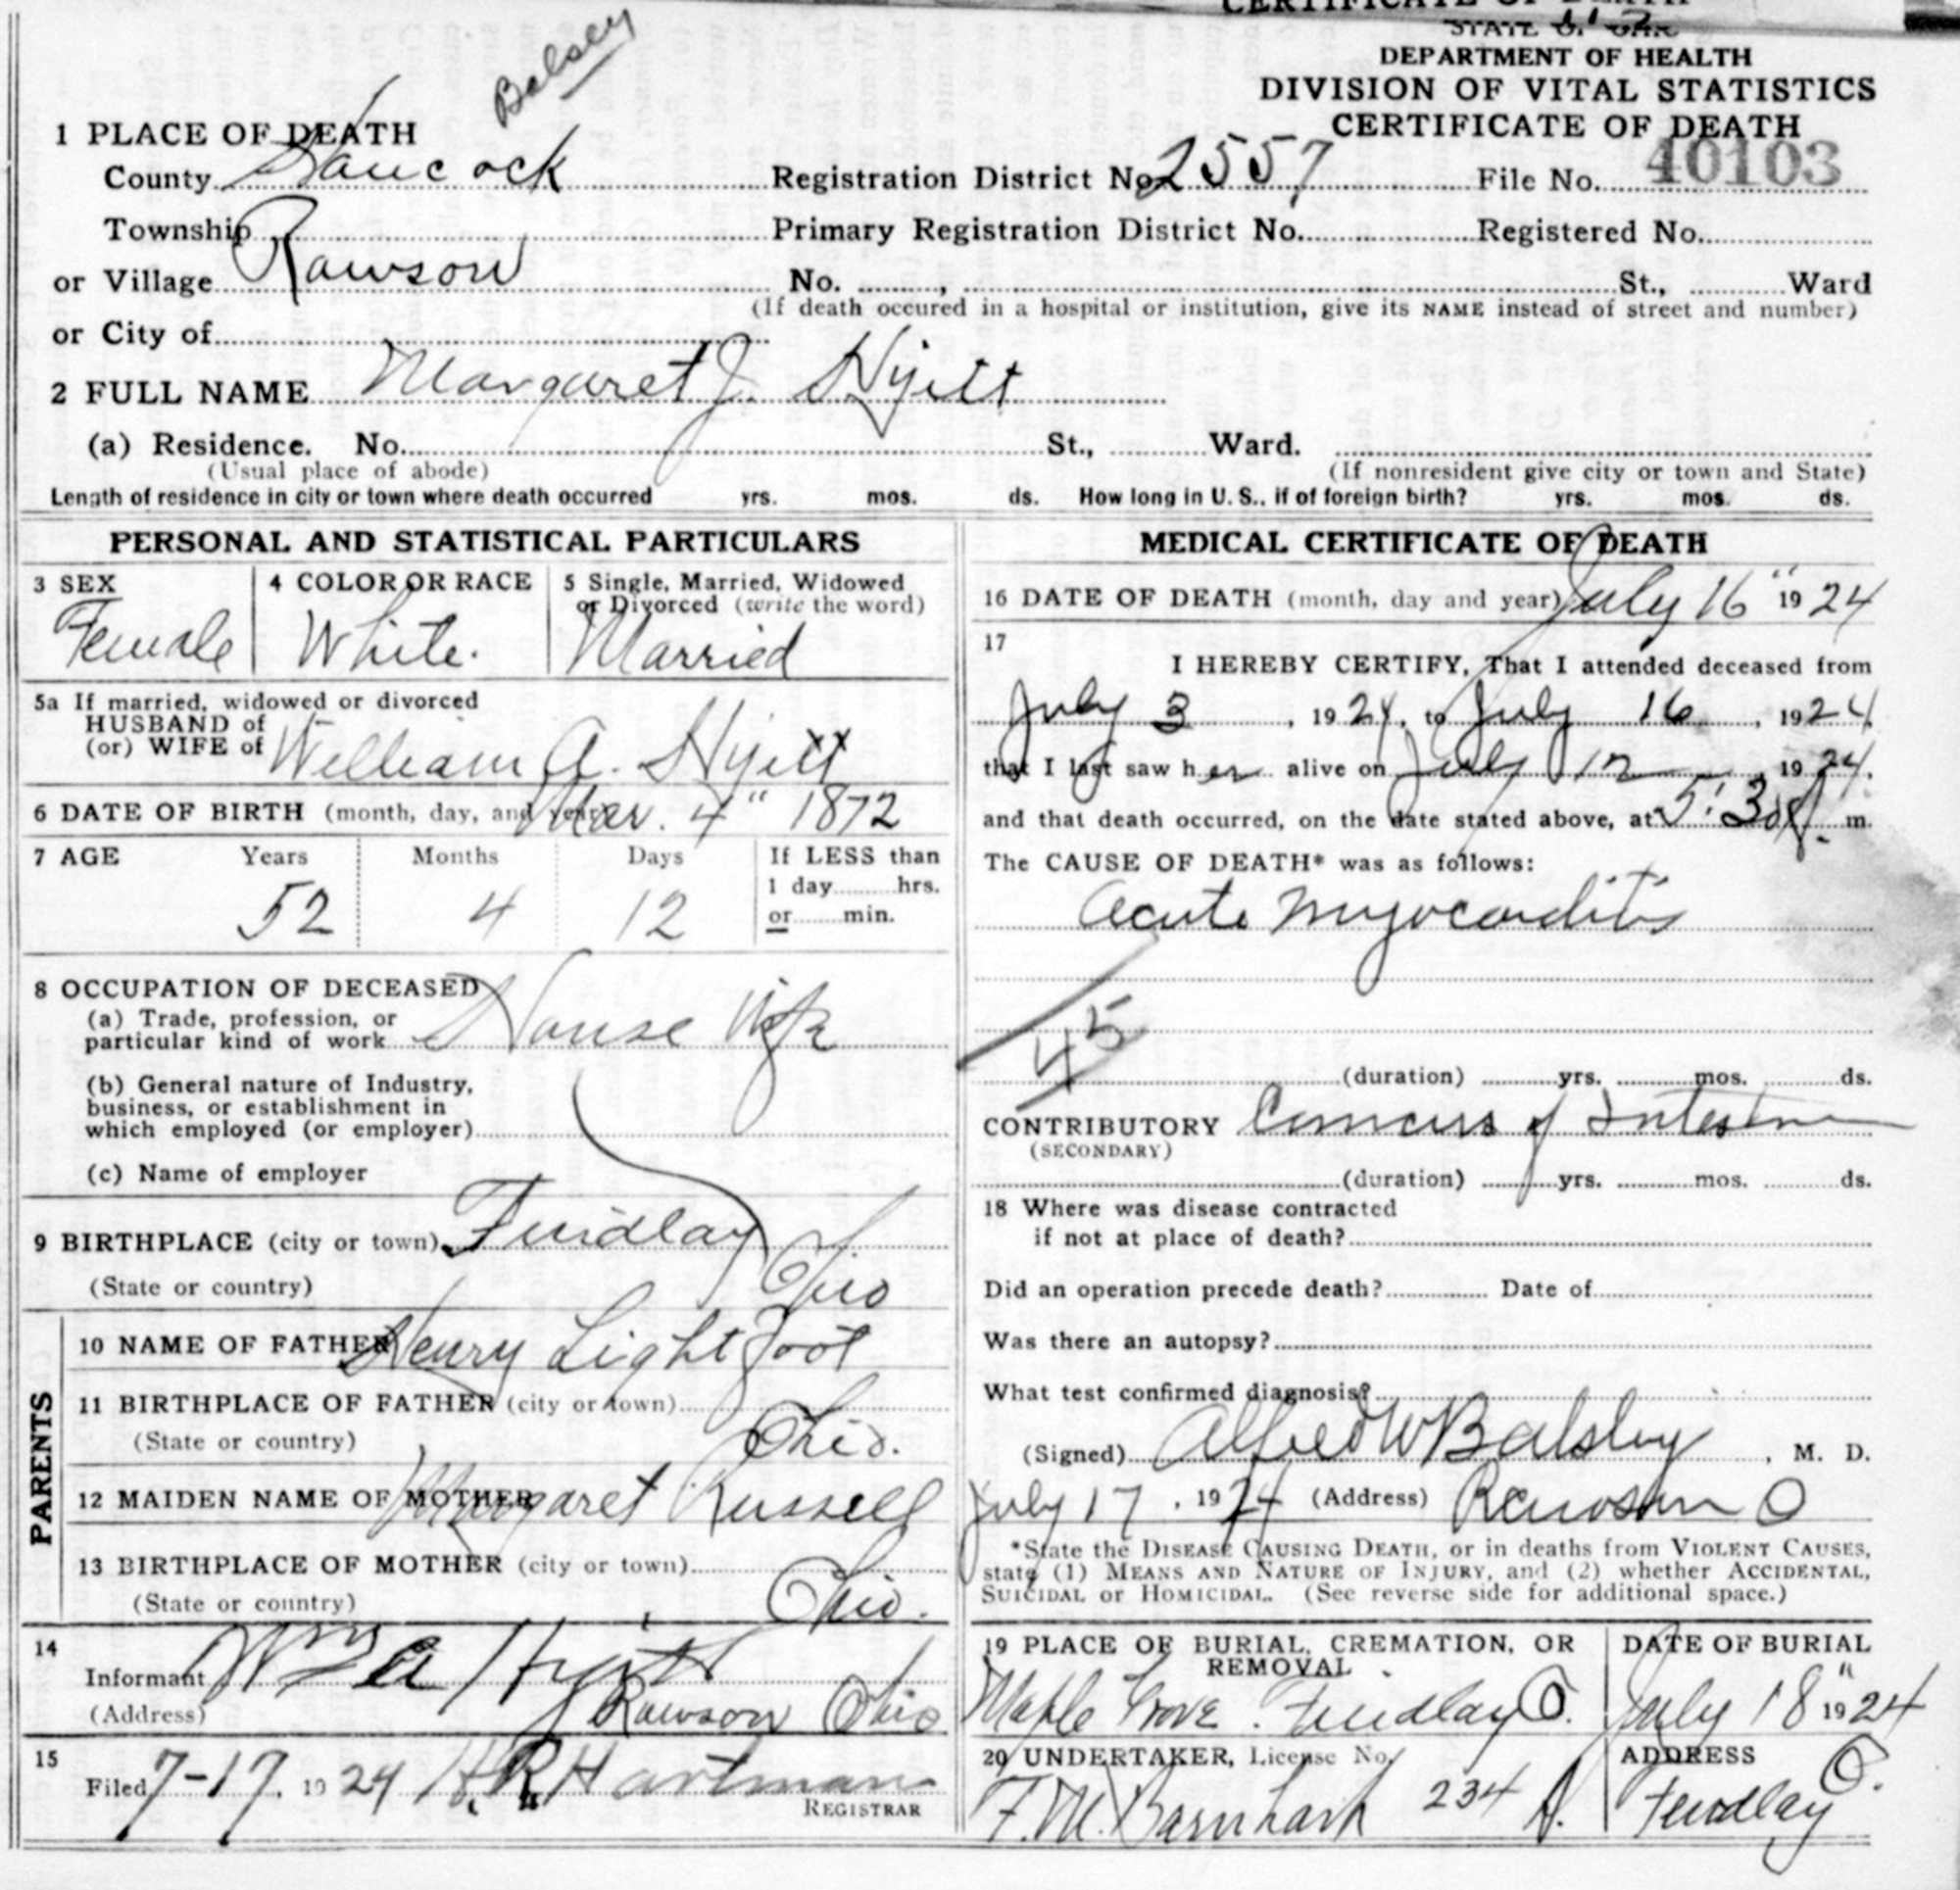 CERTIFICATE OF DEATH
STATE OF OHIO
DEPARTMENT OF HEALTH
DIVISION OF VITAL STATISTICS
CERTIFICATE OF DEATH
Balsey
1 PLACE OF DEATH
County Hancock Registration District No. 2557 File No. 40103
Township Primary Registration District No. Registered No.
or Village Rawson No. , St., Ward
(If death occured in a hospital or institution, give its NAME instead of street and number)
or City of
2 FULL NAME Margaret J. Hyett
(a) Residence. No. St., Ward.
(Usual place of abode) (If nonresident give city or town and State)
Length of residence in city or town where death occurred yrs. mos. ds. How long in U. S., if of foreign birth? yrs. mos. ds.
PERSONAL AND STATISTICAL PARTICULARS
3 SEX 4 COLOR OR RACE 5 Single, Married, Widowed
or Divorced (write the word)
Female White. Married
5a If married, widowed or divorced
HUSBAND of
(or) WIFE of William A. Hyett
6 DATE OF BIRTH (month, day, and year) Mar. 4" 1872
7 AGE Years Months Days If LESS than
1 day hrs.
52 4 12 or min.
8 OCCUPATION OF DECEASED
(a) Trade, profession, or
particular kind of work House Wife
(b) General nature of Industry,
business, or establishment in
which employed (or employer)
(c) Name of employer
9 BIRTHPLACE (city or town) Findlay
(State or country) Ohio
PARENTS
10 NAME OF FATHER Henry Lightfoot
11 BIRTHPLACE OF FATHER (city or town)
(State or country) Ohio.
12 MAIDEN NAME OF MOTHER Margaret Russell
13 BIRTHPLACE OF MOTHER (city or town)
(State or country) Ohio.
14
Informant Wm A Hyett
(Address) Rawson Ohio
15
Filed 7-17, 1924 H.R. Hartman
REGISTRAR
MEDICAL CERTIFICATE OF DEATH
16 DATE OF DEATH (month, day and year) July 16" 1924
17
I HEREBY CERTIFY, That I attended deceased from
July 3, 1924, to July 16, 1924,
that I last saw her alive on July 12, 1924,
and that death occurred, on the date stated above, at 5:30 P. m.
The CAUSE OF DEATH* was as follows:
Acute Myocarditis
45
(duration) yrs. mos. ds.
CONTRIBUTORY of
(SECONDARY)
(duration) yrs. mos. ds.
18 Where was disease contracted
if not at place of death?
Did an operation precede death? Date of
Was there an autopsy?
What test confirmed diagnosis?
(Signed) Alfred W Balsley, M. D.
July 17, 1924 (Address) Rawson O
*State the DISEASE CAUSING DEATH, or in deaths from VIOLENT CAUSES,
state (1) MEANS AND NATURE OF INJURY, and (2) whether ACCIDENTAL,
SUICIDAL or HOMICIDAL. (See reverse side for additional space.)
19 PLACE OF BURIAL, CREMATION, OR
REMOVAL
Maple Grove. Findlay O.
DATE OF BURIAL
July 18" 1924
20 UNDERTAKER, License No.
F.M. Barnhart 234 A.
ADDRESS
Findlay O.